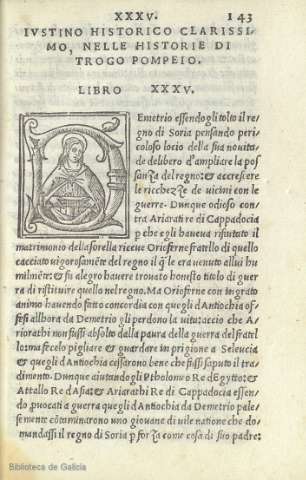 XXXV. 143
IVSTINO HISTORICO CLARISSI
MO, NELLE HISTORIE DI
TROGO POMPEIO.
LIBRO XXXV.
Emetrio essendogli tolto il re
gno di Soria pensando peri
coloso locio della sua nouita
de delibero d'ampliare la pos
sanza del regno: & accrescere
le ricchezze de uicini con le
guerre. Dunque odioso con
tra Ariarati re di Cappadocia
p che egli haueua rifiutato il
matrimonio della sorella riceue Orioferne fratello di quello
cacciato uigorosamēte del regno il q̄le era uenuto allui hu
milmēte: & fu alegro hauere trouato honesto titolo di guer
ra di ristituire quello nel regno. Ma Orioferne con ingrato
animo hauendo fatto concordia con quegli d'Antiochia of
fesi allhora da Demetrio gli perdono la uita: accio che A
riorathi non fussi absolto dalla paura della guerra del fratel
lo: ma fecelo pigliare & guardare in prigione a Seleucia
& que gli d'Antiochia cessarono bene che fussi saputo il tra
dimento. Dunque aiutandogli Ptholomeo Re d'Egytto: &
Attallo Re d'Asia: & Ariarathi Re di Cappadocia essen
do ꝓuocati a guerra quegli d'Antiochia da Demetrio pale/
semente cōminarono uno giouane di uile natione che do/
mandassi il regno di Soria p forza come cosa di suo padre:
Biblioteca de Galicia